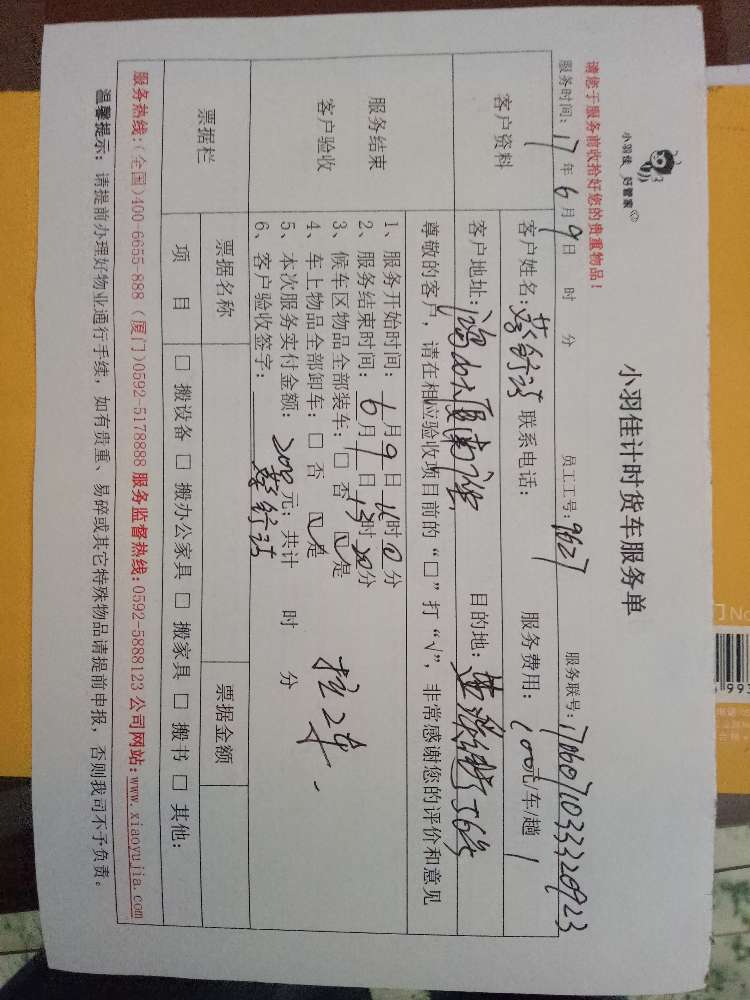 小羽佳 好管家
小羽佳计时货车服务单
请您于服务前收拾好您的贵重物品!
服务时间: 17 年 6 月 9 日 时 分 员工工号: 9527 服务联号: 1706071033320923
客户资料
客户姓名: 联系电话: 服务费用: 100元/车/趟
客户地址: 目的地:
尊敬的客户,请在相应验收项目前的“□”打“√”,非常感谢您的评价和意见
服务结束
客户验收
1、服务开始时间: 6 月 9 日 时 分
2、服务结束时间: 6 月 日 时 分
3、候车区物品全部装车: □ 否 ☑ 是
4、车上物品全部卸车: □ 否 ☑ 是
5、本次服务实付金额: 200 元, 共计 时 分
6、客户验收签字:
票据栏
票据名称 票据金额
项 目 □ 搬设备 □ 搬办公家具 □ 搬家具 □ 搬书 □ 其他:
服务热线:(全国)400-6655-888 (厦门)0592-5178888 服务监督热线:0592-5888123 公司网站:www.xiaoyujia.com
温馨提示: 请提前办理好物业通行手续, 如有贵重、易碎或其它特殊物品请提前申报, 否则我司不予负责。